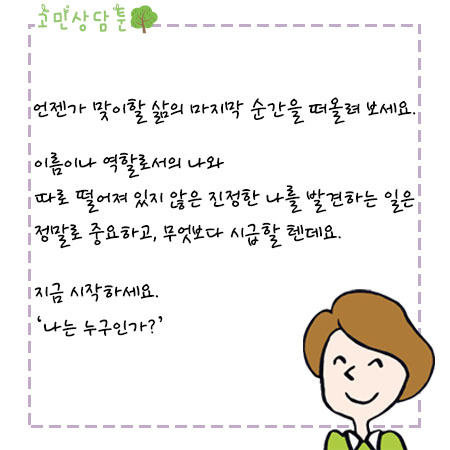 고민상담툰
언젠가 맞이할 삶의 마지막 순간을 떠올려 보세요.
이름이나 역할로서의 나와
따로 떨어져 있지 않은 진정한 나를 발견하는 일은
정말로 중요하고, 무엇보다 시급할 텐데요.
지금 시작하세요.
‘나는 누구인가?’